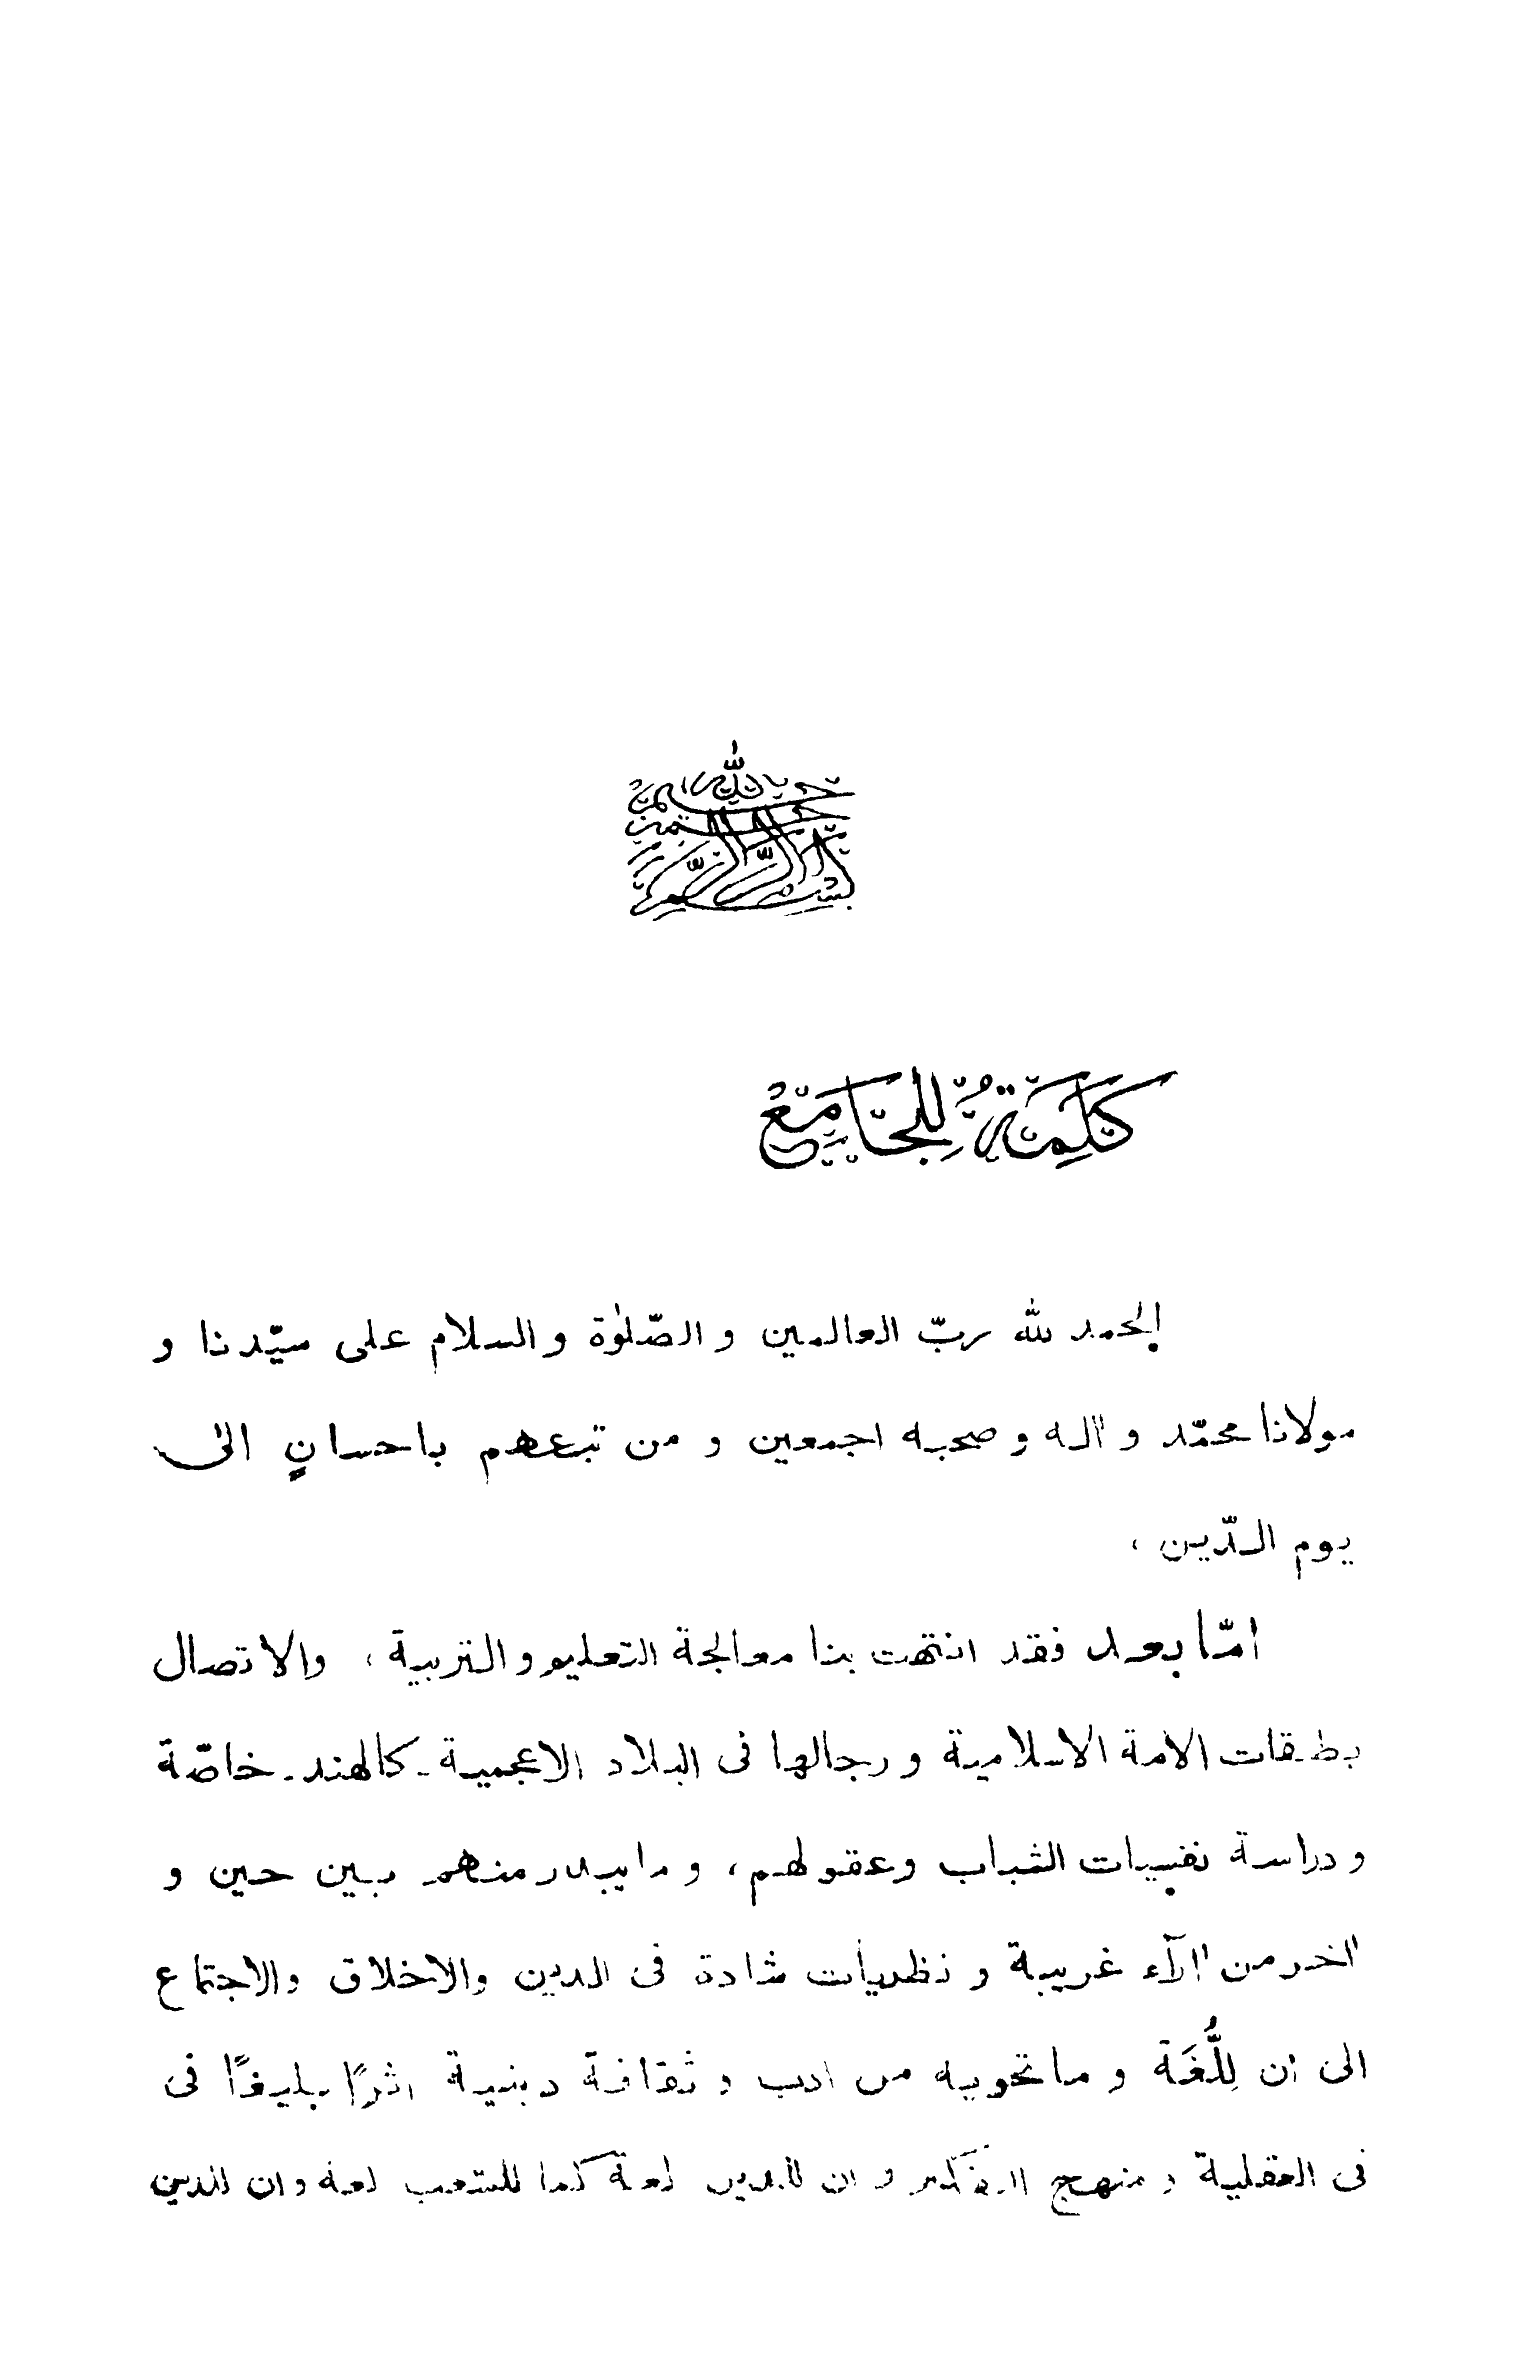 بسم الله الرحمن الرحيم
كَلِمَةٌ لِلْجَامِعِ
الحمد لله ربّ العالمين و الصّلوٰة والسلام على سيّدنا و
مولانا محمّد و اٰله و صحبه اجمعين و من تبعهم باحسانٍ الى
يوم الدّين ،
امّا بعد فقد انتهت بنا معالجة التعليم و التربية ، والاتصال
بطبقات الامة الاسلامية و رجالها فى البلاد الاعجمية ـ كالهند ـ خاصّة
و دراسة نفسيات الشباب وعقولهم ، و ما يبدر منهم بين حين و
اٰخر من اٰرآء غريبة و نظريات شاذة فى الدين والاخلاق والاجتماع
الى ان لِلُّغَة و ما تحويه من ادب و ثقافة دينية اثرًا بليغًا فى
فى العقلية و منهج التفكير و ان للدين لغة كما للشعب لغة و ان للدين